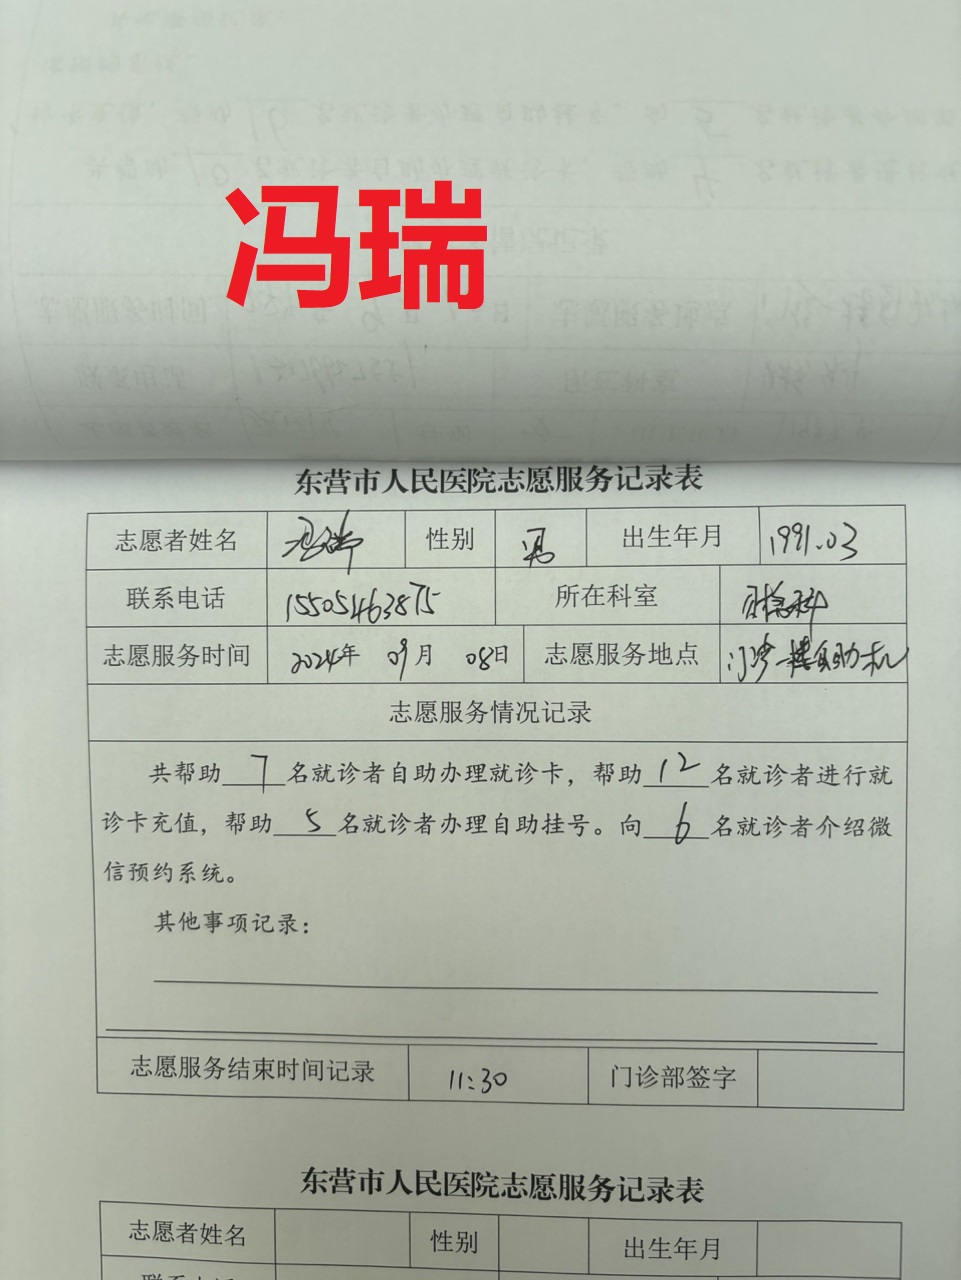 冯瑞
东营市人民医院志愿服务记录表
志愿者姓名 冯瑞 性别 男 出生年月 1991.03
联系电话 15505463875 所在科室
志愿服务时间 2024年 09月 08日 志愿服务地点 门诊一楼自助机
志愿服务情况记录
共帮助7名就诊者自助办理就诊卡，帮助12名就诊者进行就
诊卡充值，帮助5名就诊者办理自助挂号。向6名就诊者介绍微
信预约系统。
其他事项记录：
志愿服务结束时间记录 11:30 门诊部签字
东营市人民医院志愿服务记录表
志愿者姓名 性别 出生年月
联系电话